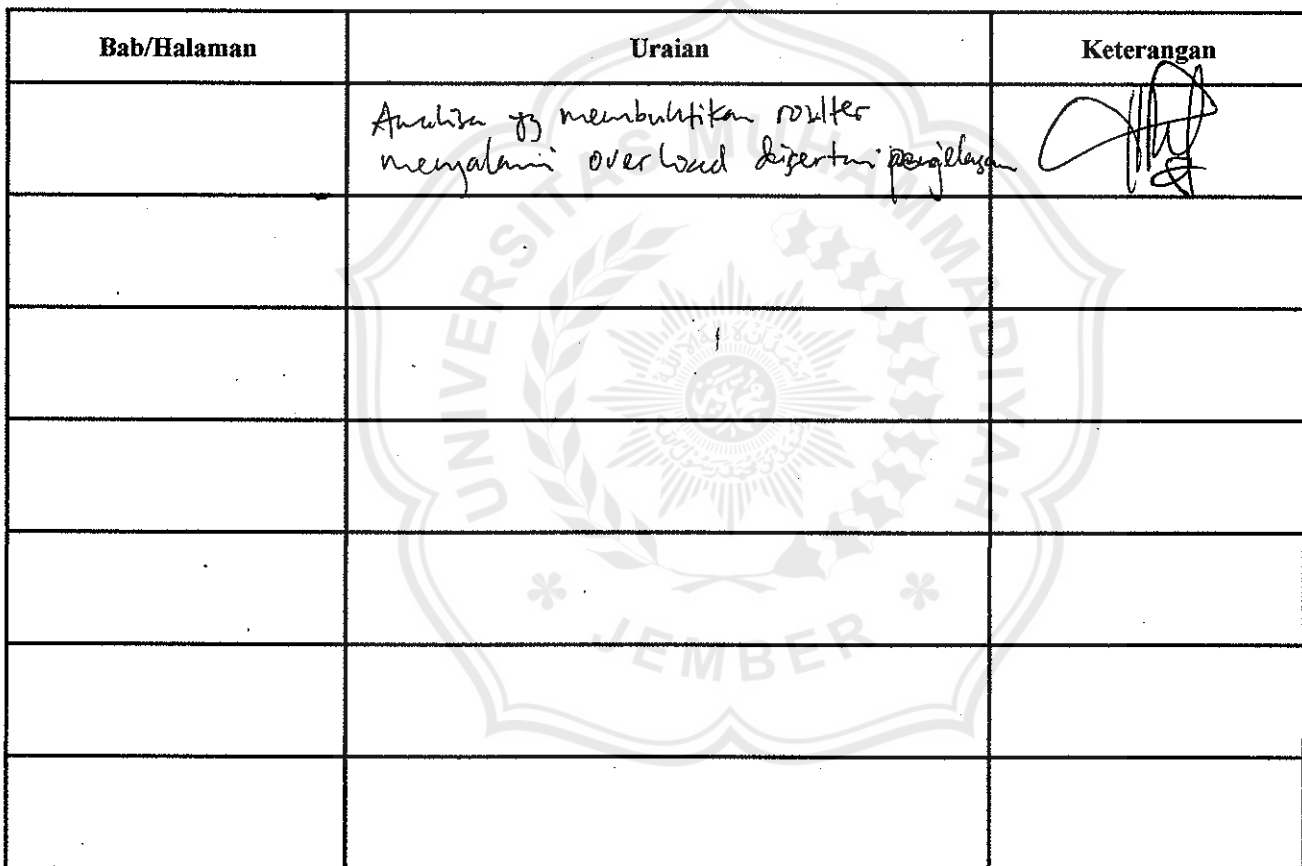 Bab/Halaman Uraian Keterangan
Analisa yg membuktikan router
mengalami overload disertai penjelasan
UNIVERSITAS MUHAMMADIYAH
JEMBER